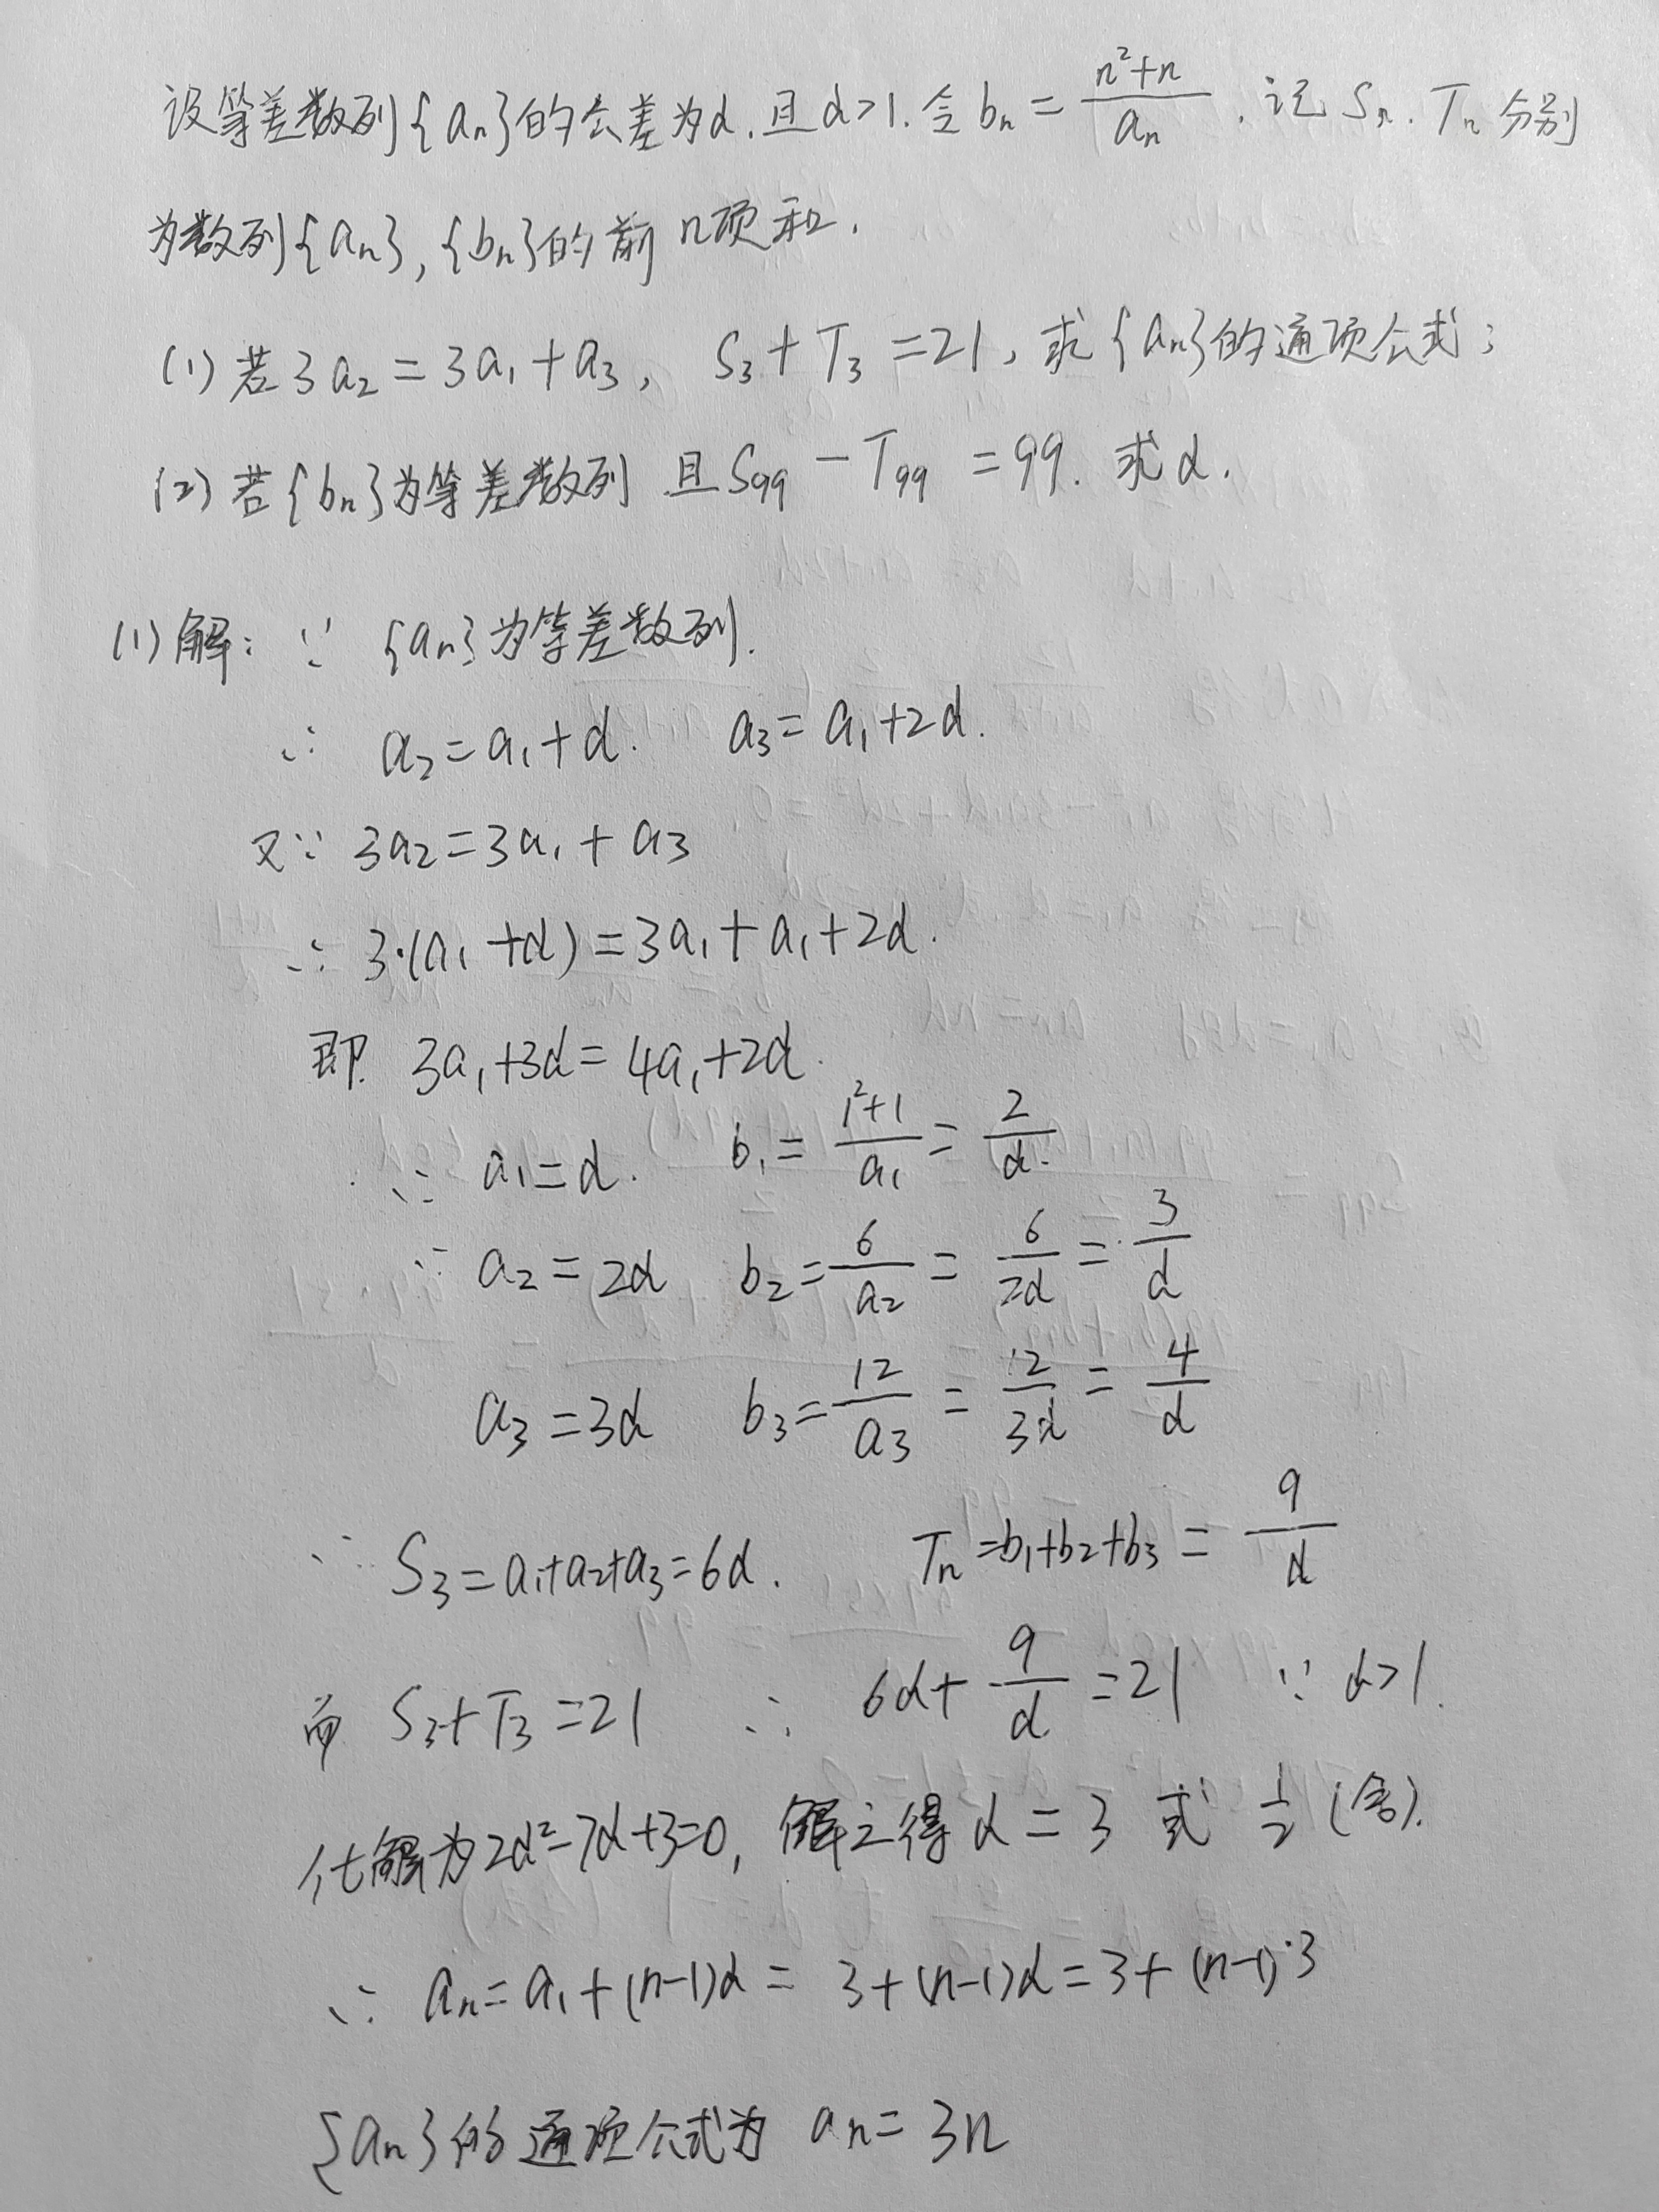 设等差数列{aₙ}的公差为d,且d>1.令bₙ=(n²+n)/aₙ.记Sₙ.Tₙ分别
为数列{aₙ},{bₙ}的前n项和.
(1)若3a₂=3a₁+a₃, S₃+T₃=21,求{aₙ}的通项公式;
(2)若{bₙ}为等差数列 且S₉₉-T₉₉=99.求d.
(1)解:∵ {aₙ}为等差数列.
∴ a₂=a₁+d. a₃=a₁+2d.
又∵ 3a₂=3a₁+a₃
∴ 3·(a₁+d)=3a₁+a₁+2d.
即 3a₁+3d=4a₁+2d.
∴ a₁=d. b₁=(1²+1)/a₁=2/d.
∴ a₂=2d b₂=6/a₂=6/2d=3/d
a₃=3d b₃=12/a₃=12/3d=4/d
∴ S₃=a₁+a₂+a₃=6d. Tₙ=b₁+b₂+b₃=9/d
而 S₃+T₃=21 ∴ 6d+9/d=21 ∵ d>1.
化解为2d²-7d+3=0,解之得d=3 或 1/2(舍).
∴ aₙ=a₁+(n-1)d=3+(n-1)d=3+(n-1)·3
{aₙ}的通项公式为 aₙ=3n